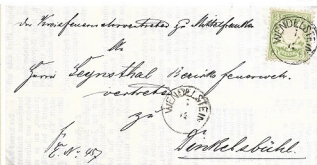 Der Kreisfeuerwehrvertreter zu Mittelfranken
An
Herrn Bezirksfeuerwehr-
vertreter
zu
Dinkelsbühl.
WENDELSTEIN
WENDELSTEIN